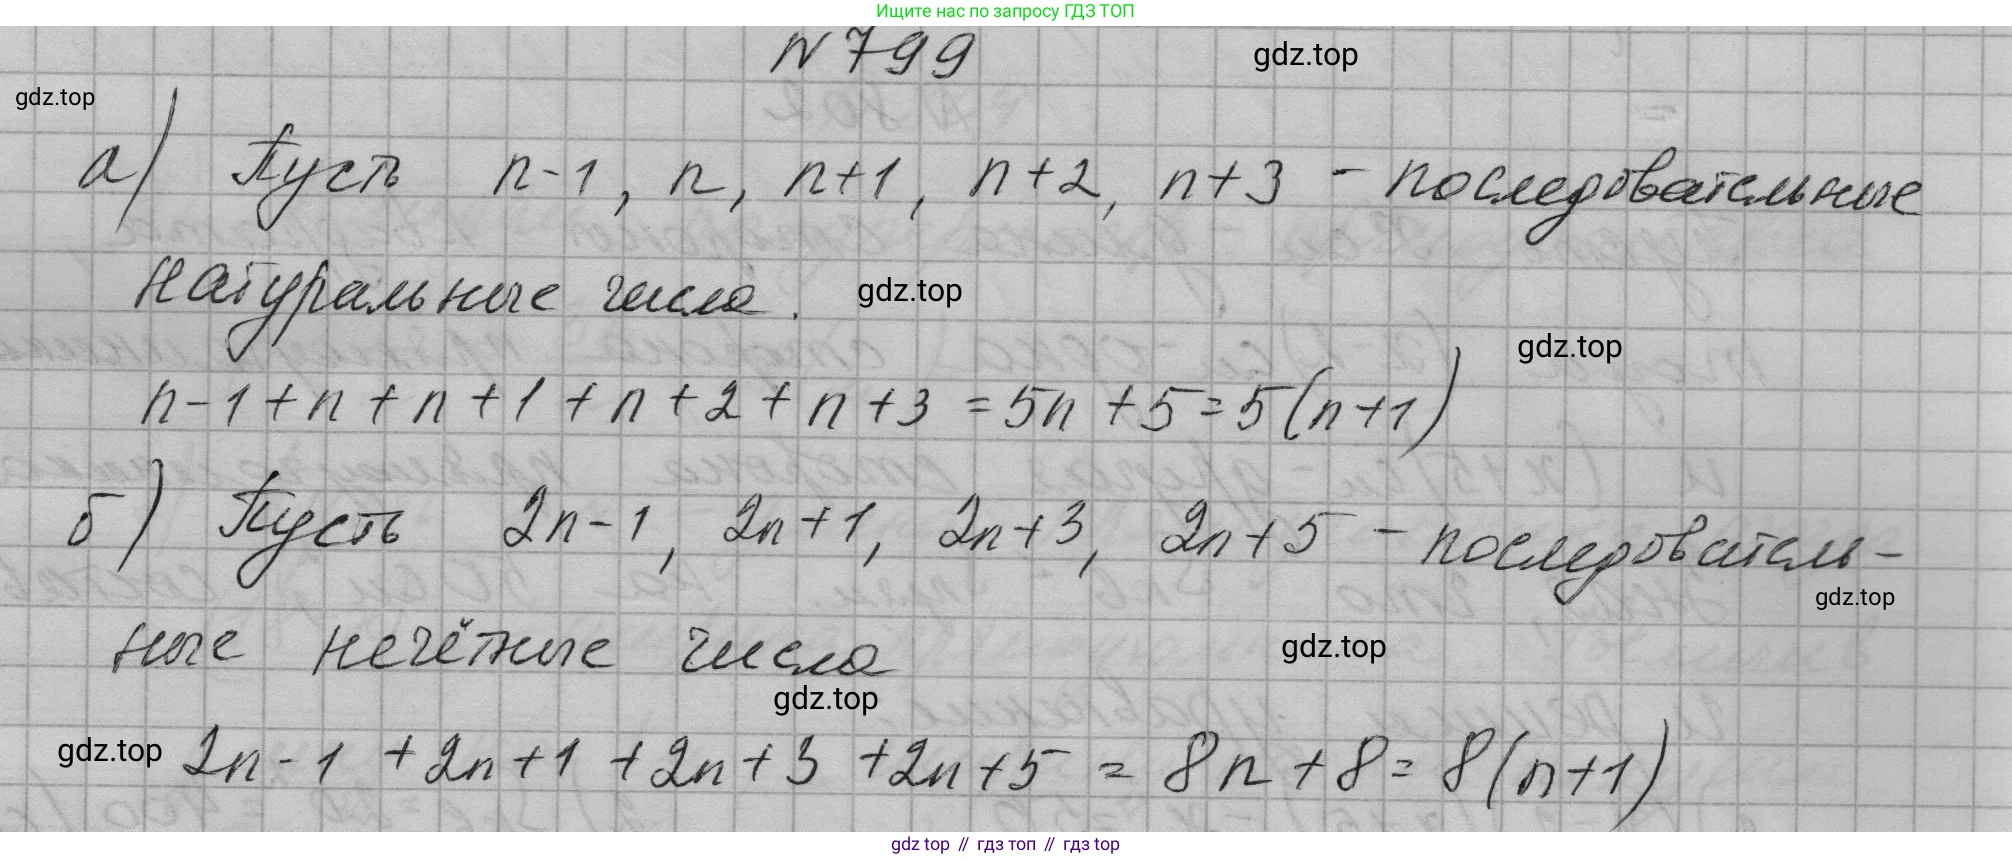 Ищите нас по запросу ГДЗ ТОП
N 799
gdz.top
gdz.top
а) Пусть n-1, n, n+1, n+2, n+3 - последовательные
натуральные числа.
gdz.top
gdz.top
n-1+n+n+1+n+2+n+3 = 5n+5 = 5(n+1)
б) Пусть 2n-1, 2n+1, 2n+3, 2n+5 - последователь-
gdz.top
ные нечётные числа
gdz.top
gdz.top
gdz.top
2n-1+2n+1+2n+3+2n+5 = 8n+8 = 8(n+1)
gdz top // гдз топ // гдз top